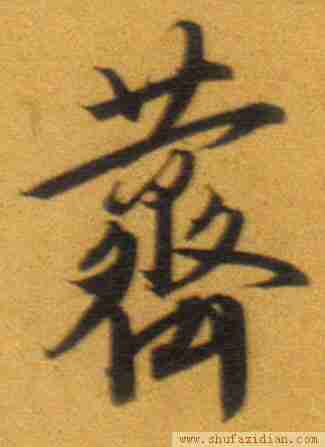 薺
www.shufazidian.com